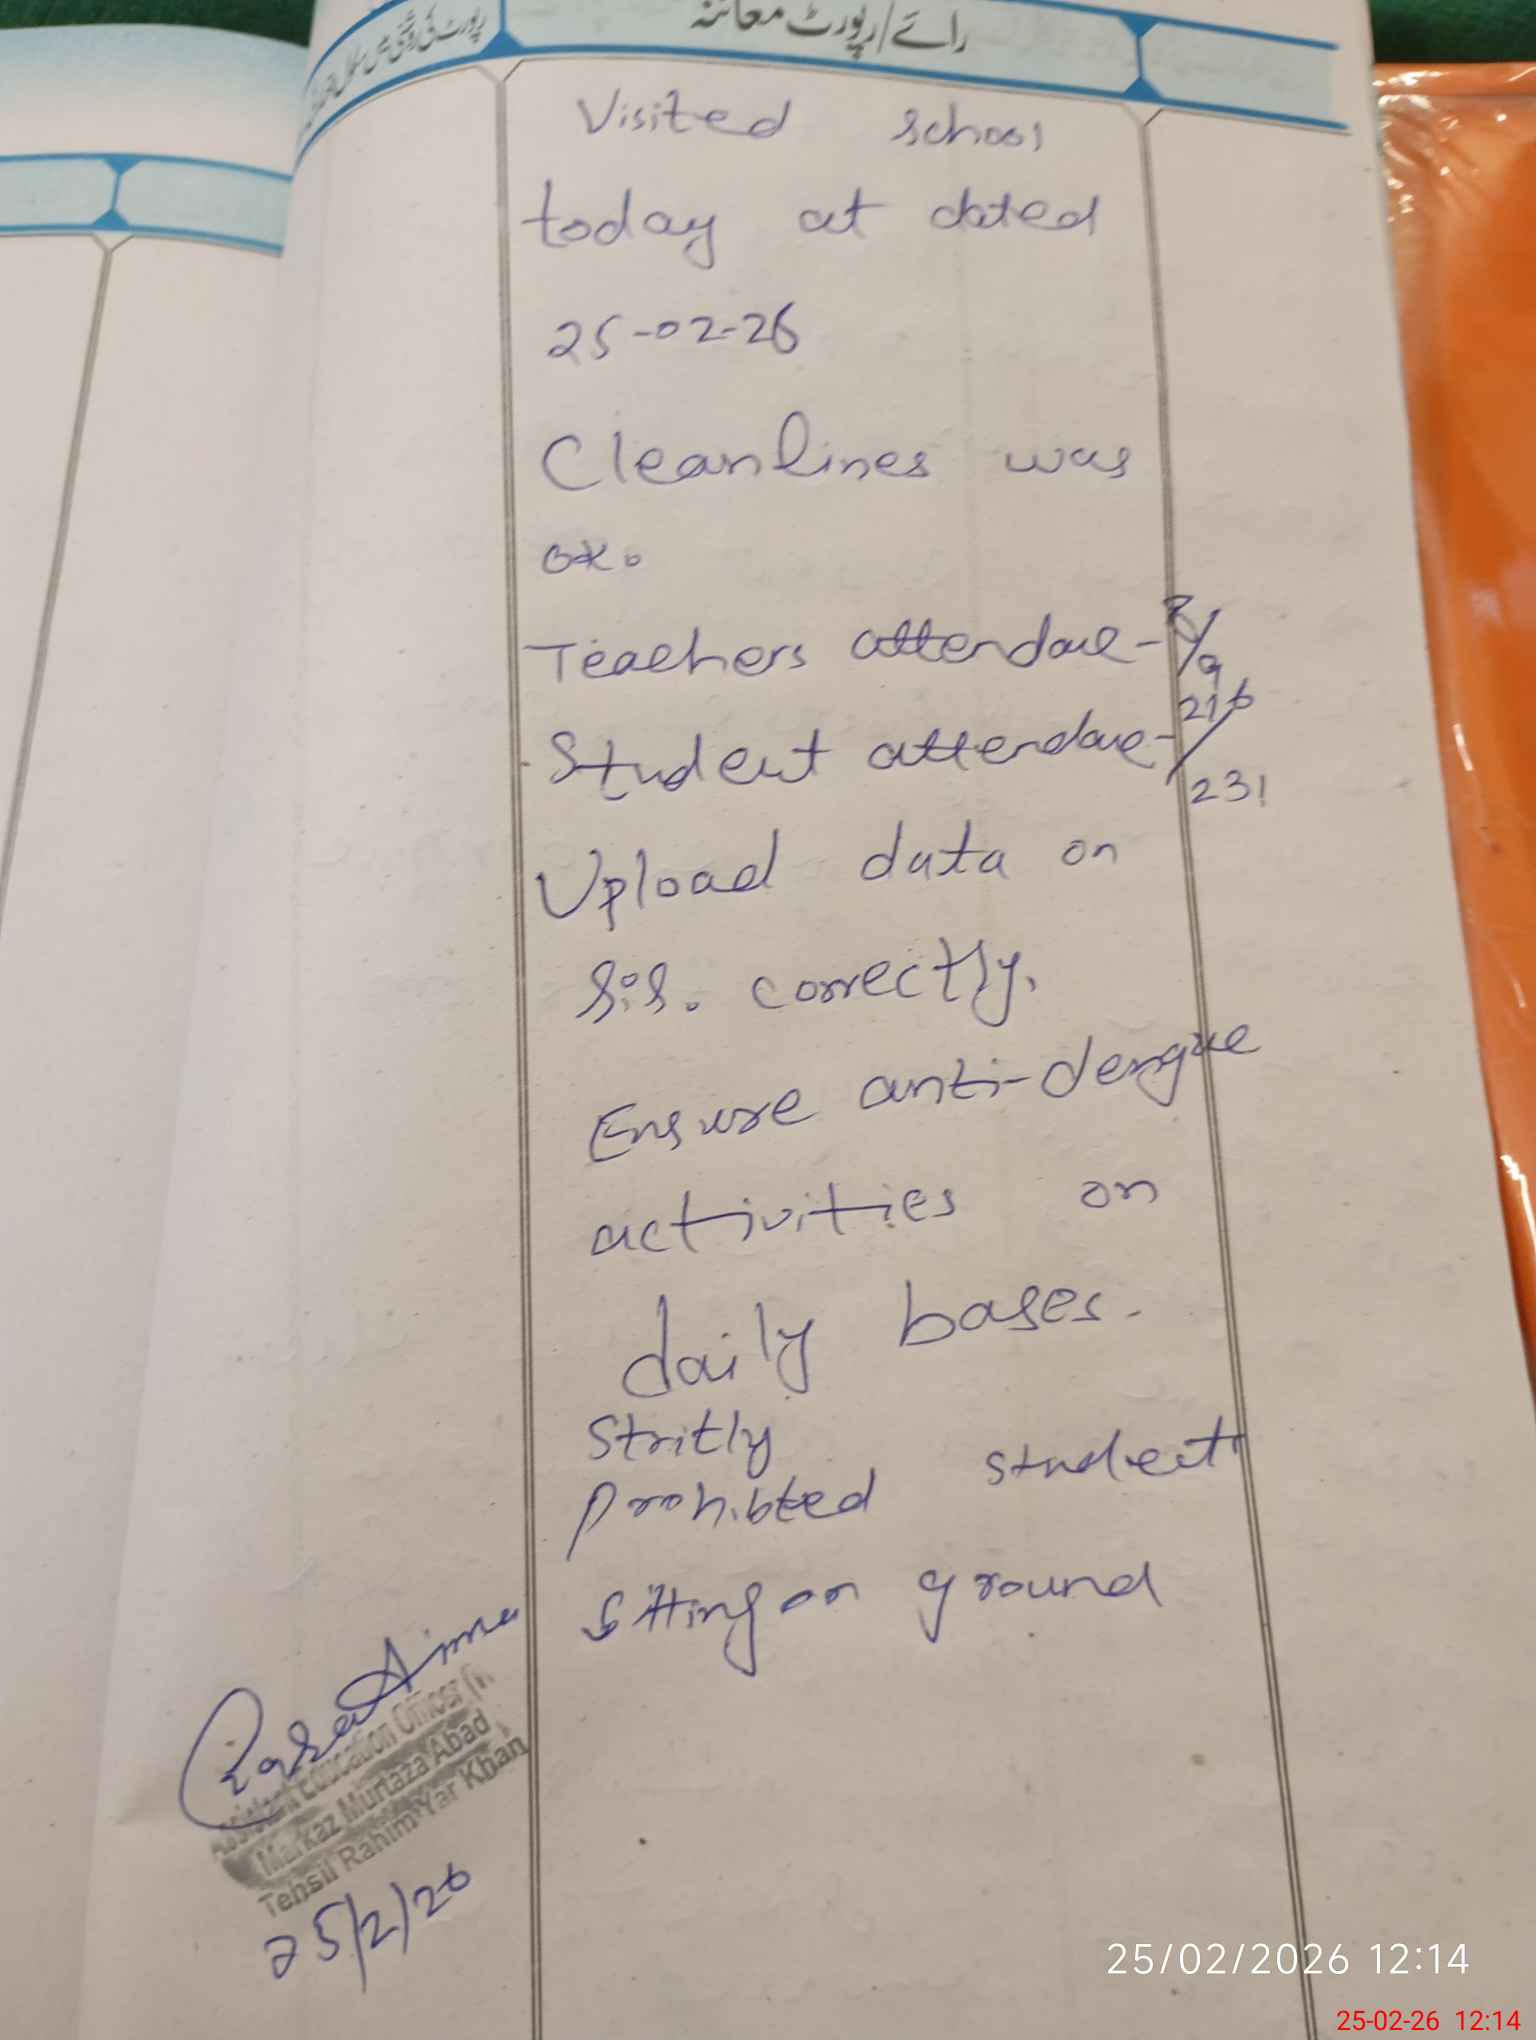 رائے/رپورٹ معائنہ
رپورٹ کی روشنی میں
Visited school
today at dated
25-02-26
Cleanlines was
ok.
Teachers attendace - 8/9
Student attendace - 216/231
Upload data on
S.i.S. correctly.
Ensure anti-dengue
activities on
daily bases.
Stritly
Prohibted student
sitting on ground
Assistant Education Officer
Markaz Murtaza Abad
Tehsil Rahim Yar Khan
25/2/26
25/02/2026 12:14
25-02-26 12:14